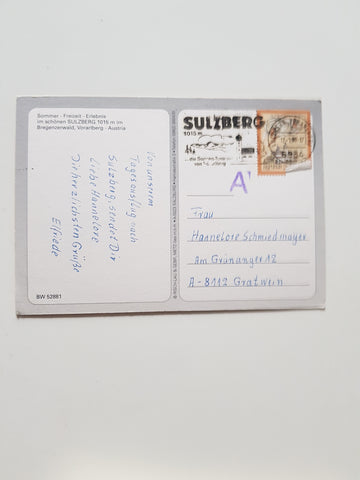 Sommer - Freizeit - Erlebnis
im schönen SULZBERG 1015 m im
Bregenzerwald, Vorarlberg - Austria
Von unserm
Tagesausflug nach
Sulzberg, sendet Dir
liebe Hannelore
Die herzlichsten Grüße
Elfriede
BW 52881
SULZBERG
1015 m
6934
A
Frau
Hannelore Schmiedmayer
Am Grünanger 12
A-8112 Gratwein